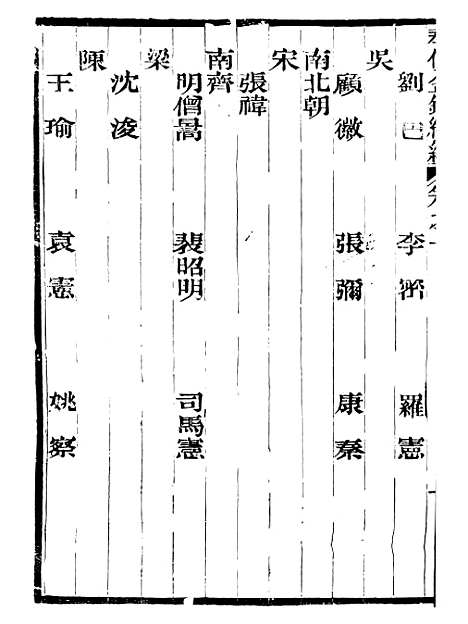 劉邕 李密 羅憲
吳
顧徽 張彌 康秦
南北朝
宋
張禕
南齊
明僧暠 裴昭明 司馬憲
梁
沈淩
陳
王瑜 袁憲 姚察